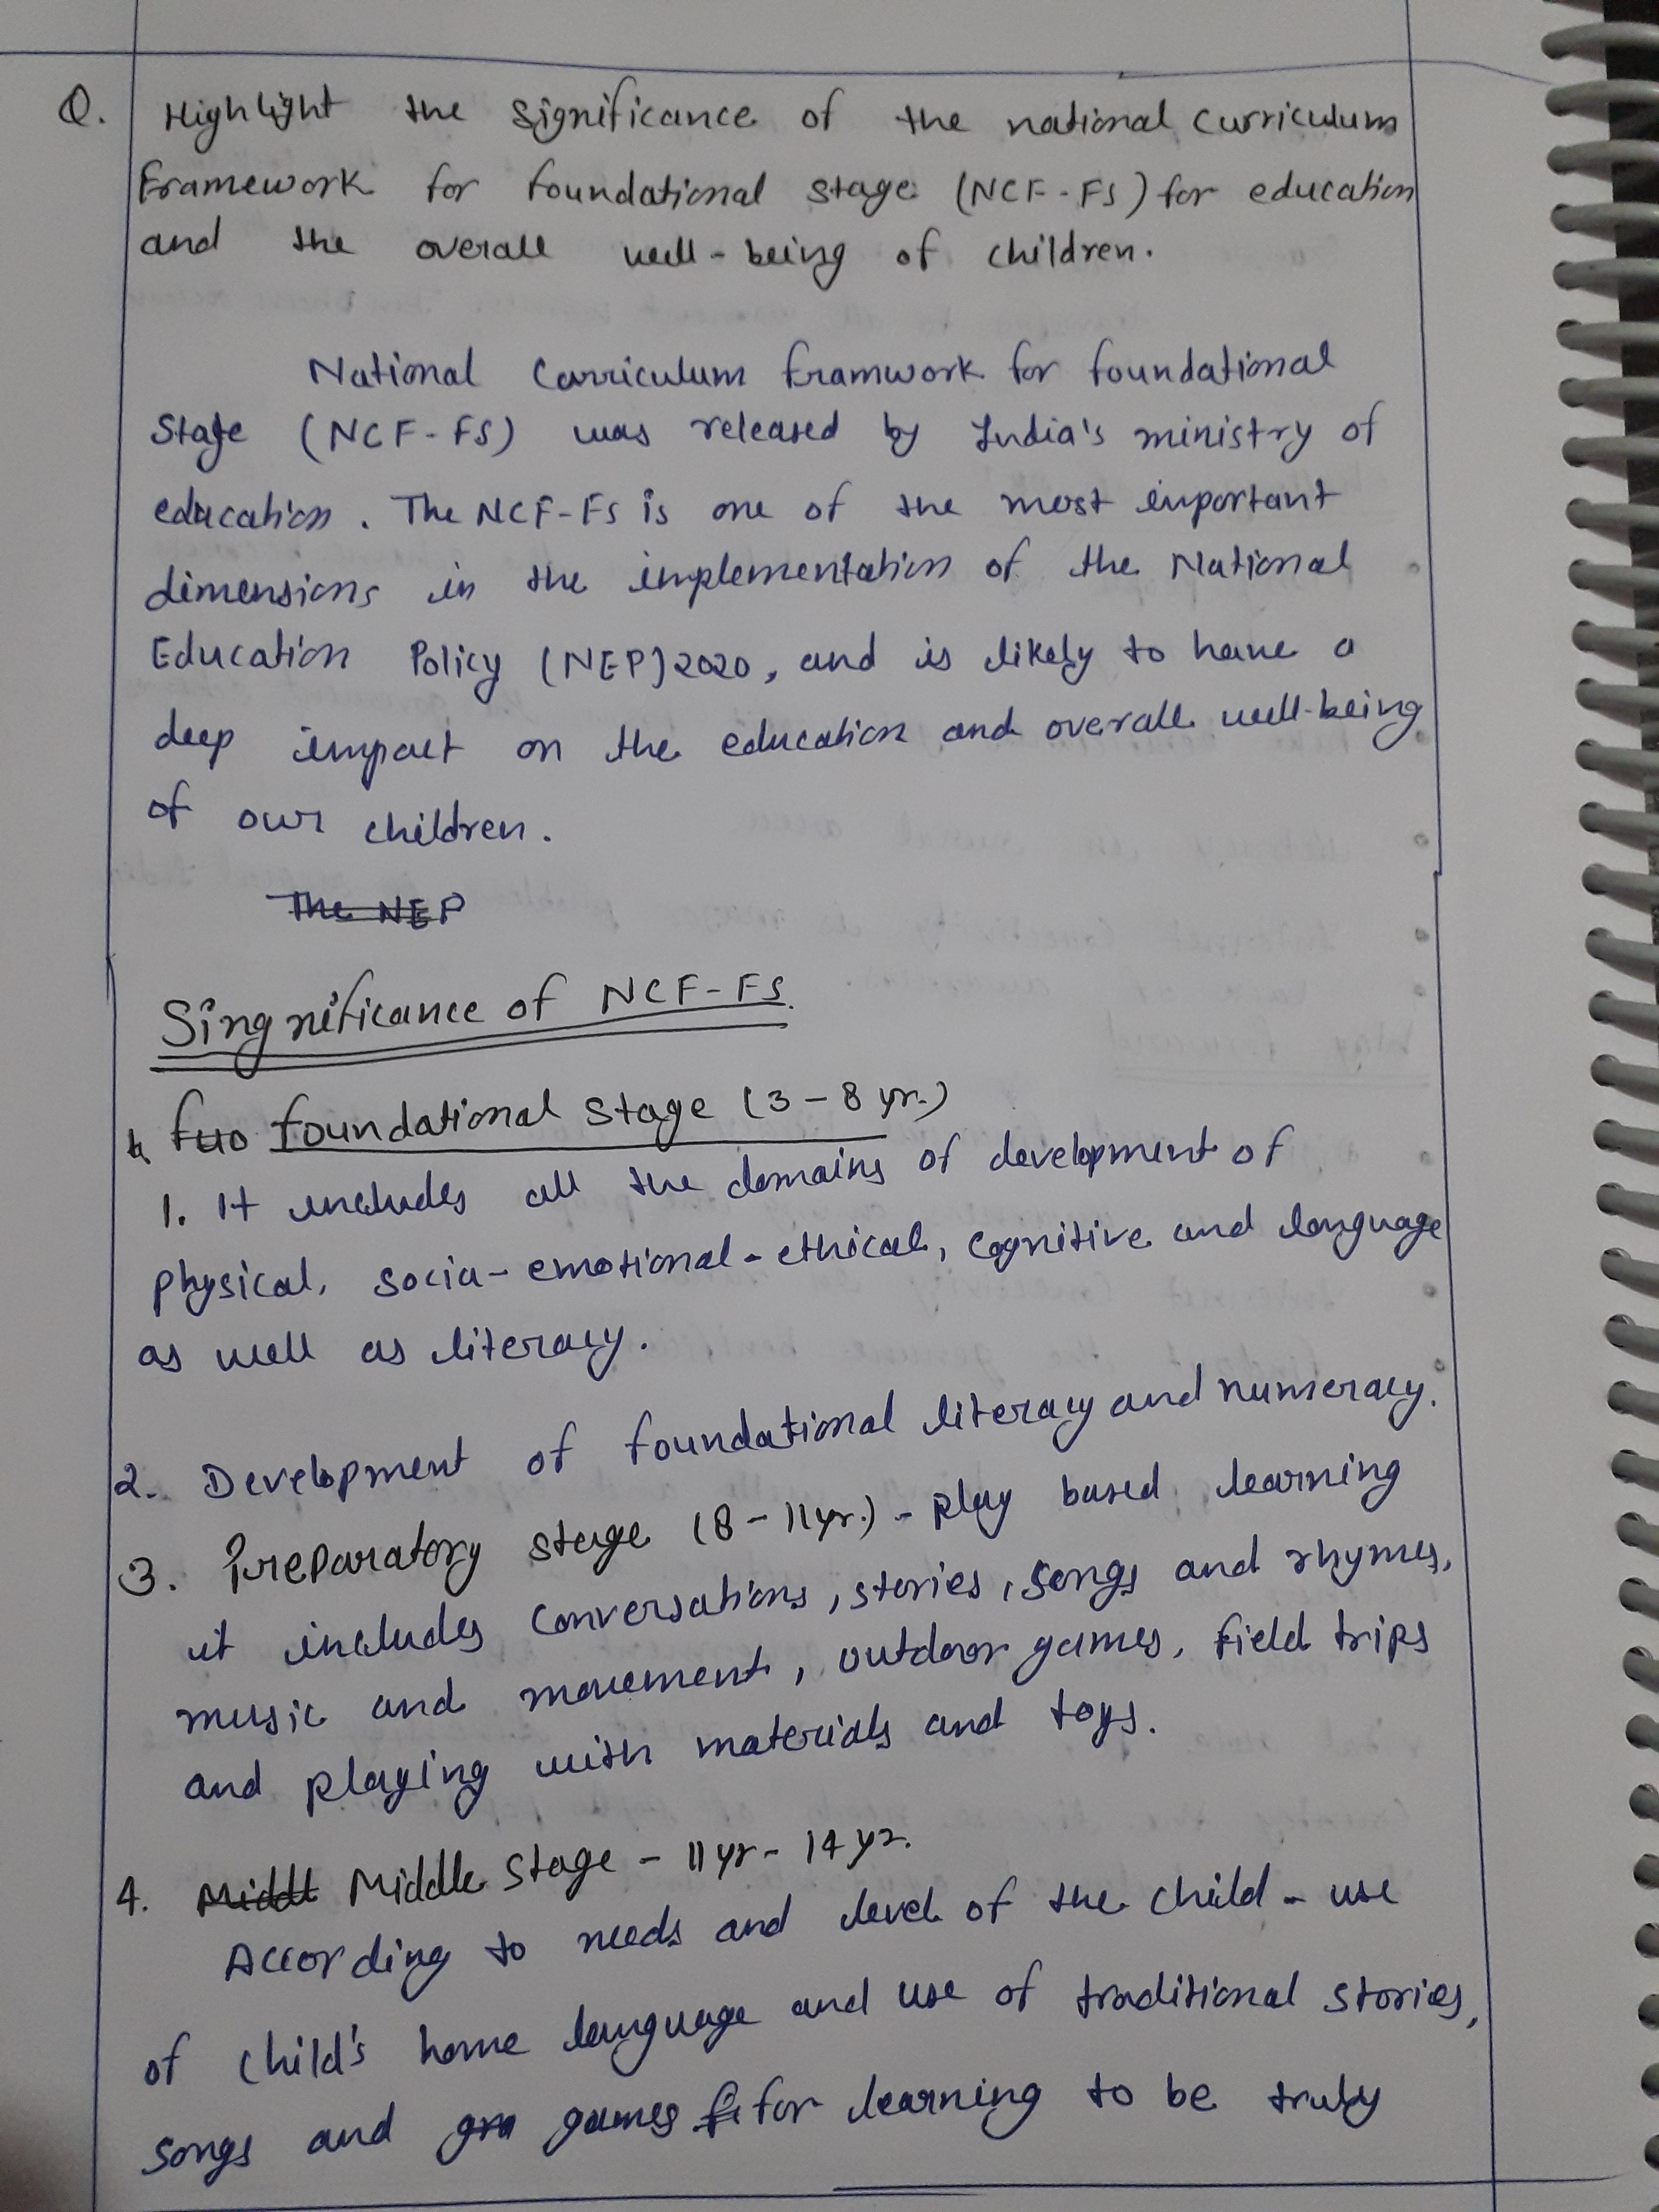 Q. Highlight the significance of the national curriculum
Framework for foundational stage (NCF-FS) for education
and the overall well-being of children.
National Curriculum framwork for foundational
Stage (NCF-FS) was released by India's ministry of
education. The NCF-FS is one of the most important
dimensions in the implementation of the National
Education Policy (NEP) 2020, and is likely to have a
deep impact on the education and overall well-being
of our children.
The NEP
Singnificance of NCF-FS.
foundational stage (3-8 yr.)
1. It includes all the domains of development of
physical, socia-emotional-ethical, cognitive and language
as well as literacy.
2. Development of foundational literacy and numeracy.
3. Preparatory stage (8-11yr.) - play based learning
it includes conversations, stories, songs and rhymes,
music and movement, outdoor games, field trips
and playing with materials and toys.
4. Middl Middle Stage - 11 yr - 14 yr.
According to needs and level of the child - use
of child's home language and use of traditional stories,
songs and gra games for learning to be truly